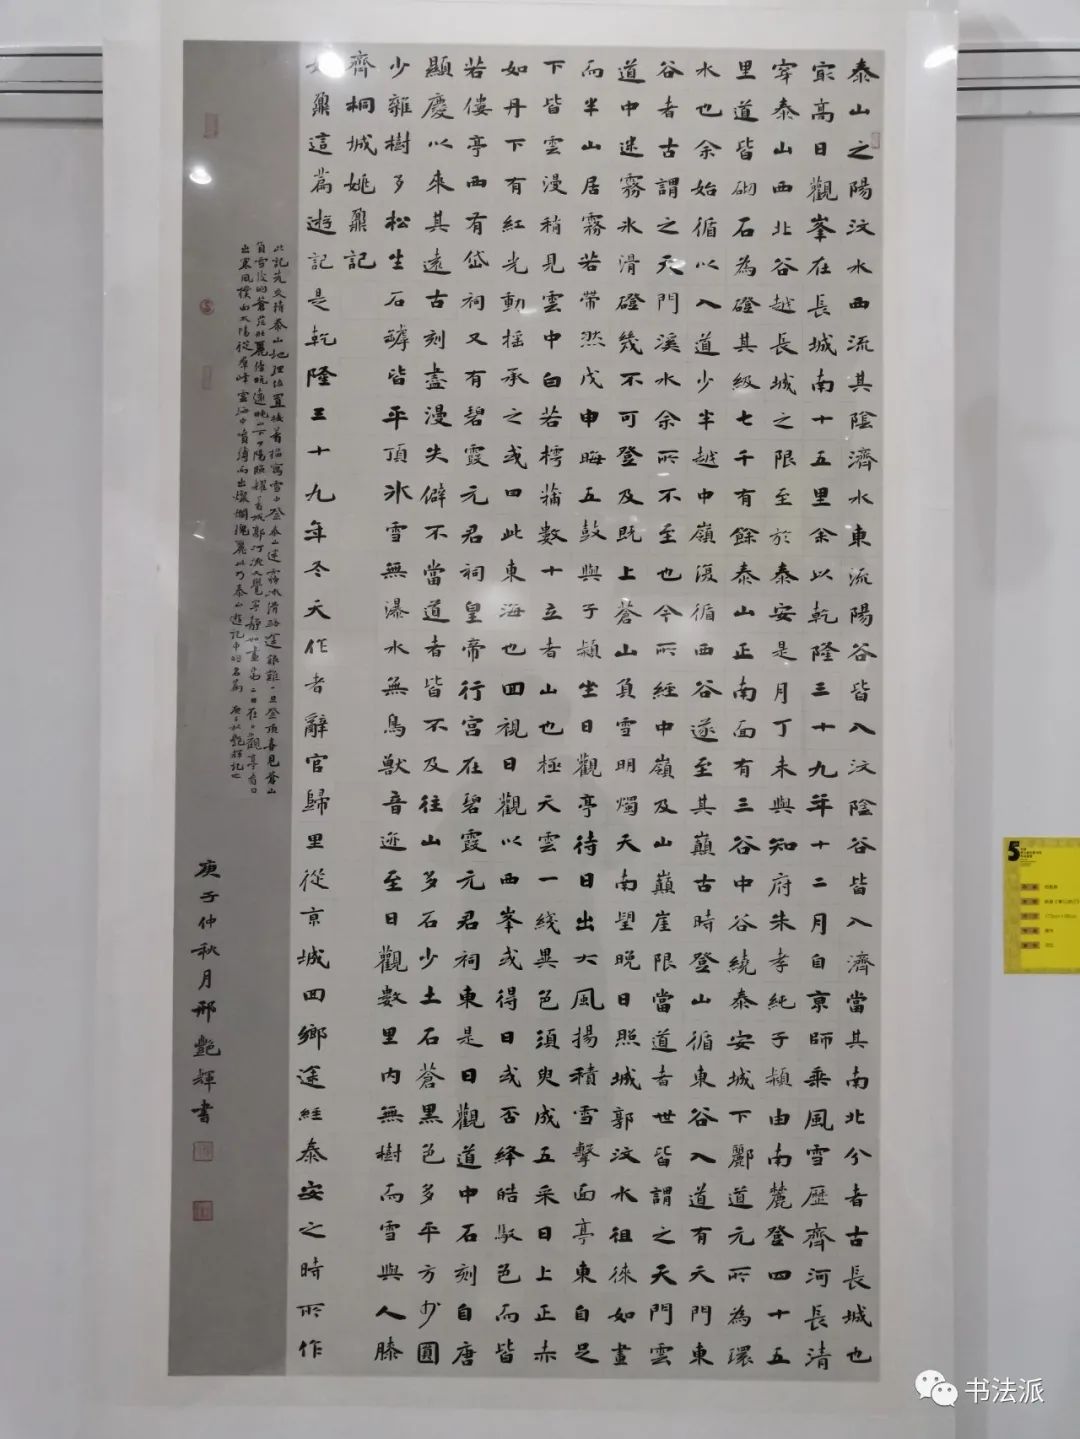 泰山之陽汶水西流其陰濟水東流陽谷皆入汶陰谷皆入濟當其南北分者古長城也
冣高日觀峯在長城南十五里余以乾隆三十九年十二月自京師乘風雪歷齊河長清
穿泰山西北谷越長城之限至於泰安是月丁未與知府朱孝純子潁由南麓登四十五
里道皆砌石為磴其級七千有餘泰山正南面有三谷中谷繞泰安城下酈道元所為環
水也余始循以入道少半越中嶺復循西谷遂至其巔古時登山循東谷入道有天門東
谷者古謂之天門溪水余所不至也今所經中嶺及山巔崖限當道者世皆謂之天門雲
道中迷霧冰滑磴幾不可登及既上蒼山負雪明燭天南望晚日照城郭汶水徂徠如畫
而半山居霧若帶然戊申晦五鼓與子潁坐日觀亭待日出大風揚積雪擊面亭東自足
下皆雲漫稍見雲中白若樗蒲數十立者山也極天雲一綫異色須臾成五采日上正赤
如丹下有紅光動摇承之或曰此東海也回視日觀以西峯或得日或否絳皓馭色而皆
若僂亭西有岱祠又有碧霞元君祠皇帝行宮在碧霞元君祠東是日觀道中石刻自唐
顯慶以來其遠古刻盡漫失僻不當道者皆不及往山多石少土石蒼黑色多平方少圓
少雜樹多松生石罅皆平頂冰雪無瀑水無鳥獸音迹至日觀數里內無樹而雪與人膝
齊桐城姚鼐記
姚鼐這篇遊記是乾隆三十九年冬天作者辭官歸里從京城回鄉途經泰安之時所作
此記先交待泰山地理位置接着描寫雪中登泰山迷霧冰滑路途艱難一旦登頂喜見蒼山
負雪後的蒼茫壯麗傍晚遠眺山下夕陽照耀着城郭汶水覺寧靜如畫第二日在日觀亭看日
出寒風撲面太陽從群峰雲海中噴薄而出燦爛瑰麗此乃泰山遊記中的名篇 庚子秋艷輝記之
庚子仲秋月邢艷輝書
5
书法派